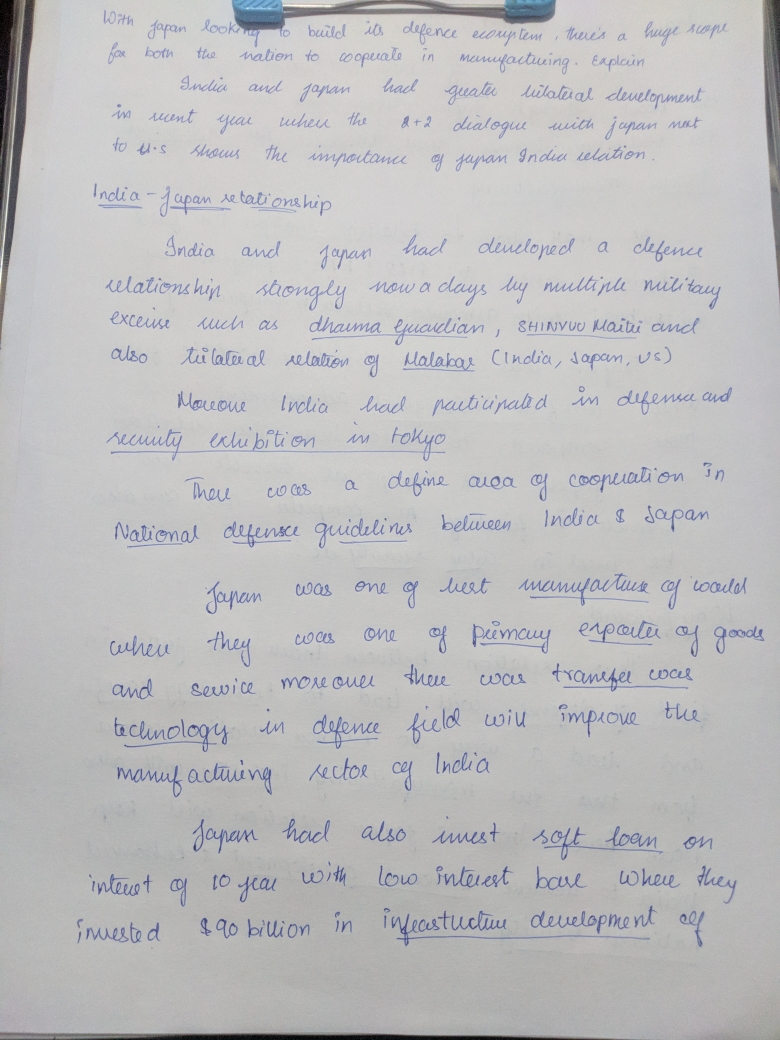 With Japan looking to build its defence ecosystem, there's a huge scope
for both the nation to cooperate in manufacturing. Explain
India and Japan had greater bilateral development
in recent year where the 2+2 dialogue with japan next
to U.S shows the importance of Japan India relation.
India - Japan relationship
India and Japan had developed a defence
relationship strongly now a days by multiple military
excerise such as dharma guardian, SHINYUU Maitri and
also trilateral relation of Malabar (India, Japan, US)
Moreover India had participated in defense and
security exhibition in tokyo
There was a define area of cooperation in
National defense guidelines between India & Japan
Japan was one of best manufacture of world
where they was one of primary exporter of goods
and service moreover there was transfer was
technology in defence field will improve the
manufacturing sector of India
Japan had also invest soft loan on
interest of 10 year with low interest base where they
invested $90 billion in infrastucture development of